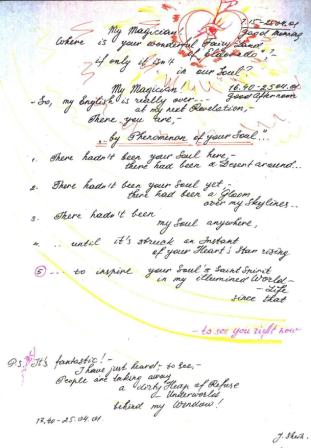 My Magician
7.15-25.04.01
Good morning
Where is your wonderful Fairy Land
if only it isn't
in our Soul?
My Magician
16.40-25.04.01
Good Afternoon
- So, my English is really over...
at my next Revelation,-
There you are,-
„by Phenomenon of your Soul"...
1. There hadn't been your Soul here,-
there had been a Desert around...
2. There hadn't been your Soul yet,-
there had been a Gloom
over my Skylines..
3. There hadn't been
my Soul anywhere,
4. .. until it's struck an Instant
of your Heart's Star rising
5 ... to inspire your Soul's Saint Spirit
in my illumined World-
Life
since that
- to see you right now
P.S. It's fantastic! -
I have just heard,- to see,-
People are taking away
a dirty Heap of Refuse
- Underworld
behind my Window!
17.40-25.04.01